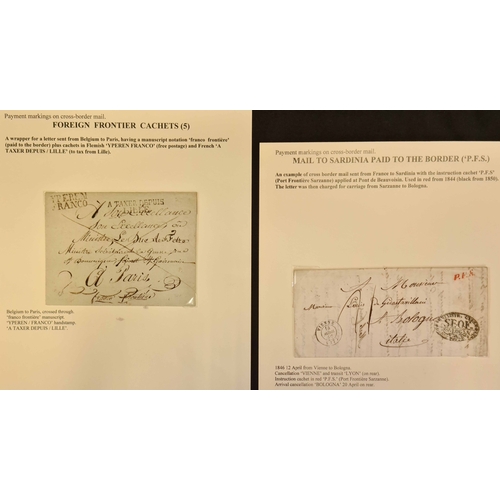 Payment markings on cross-border mail.
FOREIGN FRONTIER CACHETS (5)
A wrapper for a letter sent from Belgium to Paris, having a manuscript notation 'franco frontière'
(paid to the border) plus cachets in Flemish 'YPEREN FRANCO' (free postage) and French 'A
TAXER DEPUIS / LILLE' (to tax from Lille).
YPEREN
FRANCO
A TAXER DEPUIS
LILLE
A Paris
Belgium to Paris, crossed through
'franco frontière' manuscript.
'YPEREN / FRANCO' handstamp.
'A TAXER DEPUIS / LILLE'.
Payment markings on cross-border mail.
MAIL TO SARDINIA PAID TO THE BORDER ('P.F.S.)
An example of cross border mail sent from France to Sardinia with the instruction cachet 'P.F.S'
(Port Frontière Sarzanne) applied at Pont de Beauvoisin. Used in red from 1844 (black from 1850).
The letter was then charged for carriage from Sarzanne to Bologna.
P.F.S.
A Monsieur
Monsieur
à Bologne
italie
1846 12 April from Vienne to Bologna.
Cancellation 'VIENNE' and transit 'LYON' (on rear).
Instruction cachet in red 'P.F.S.' (Port Frontière Sarzanne).
Arrival cancellation 'BOLOGNA' 20 April on rear.